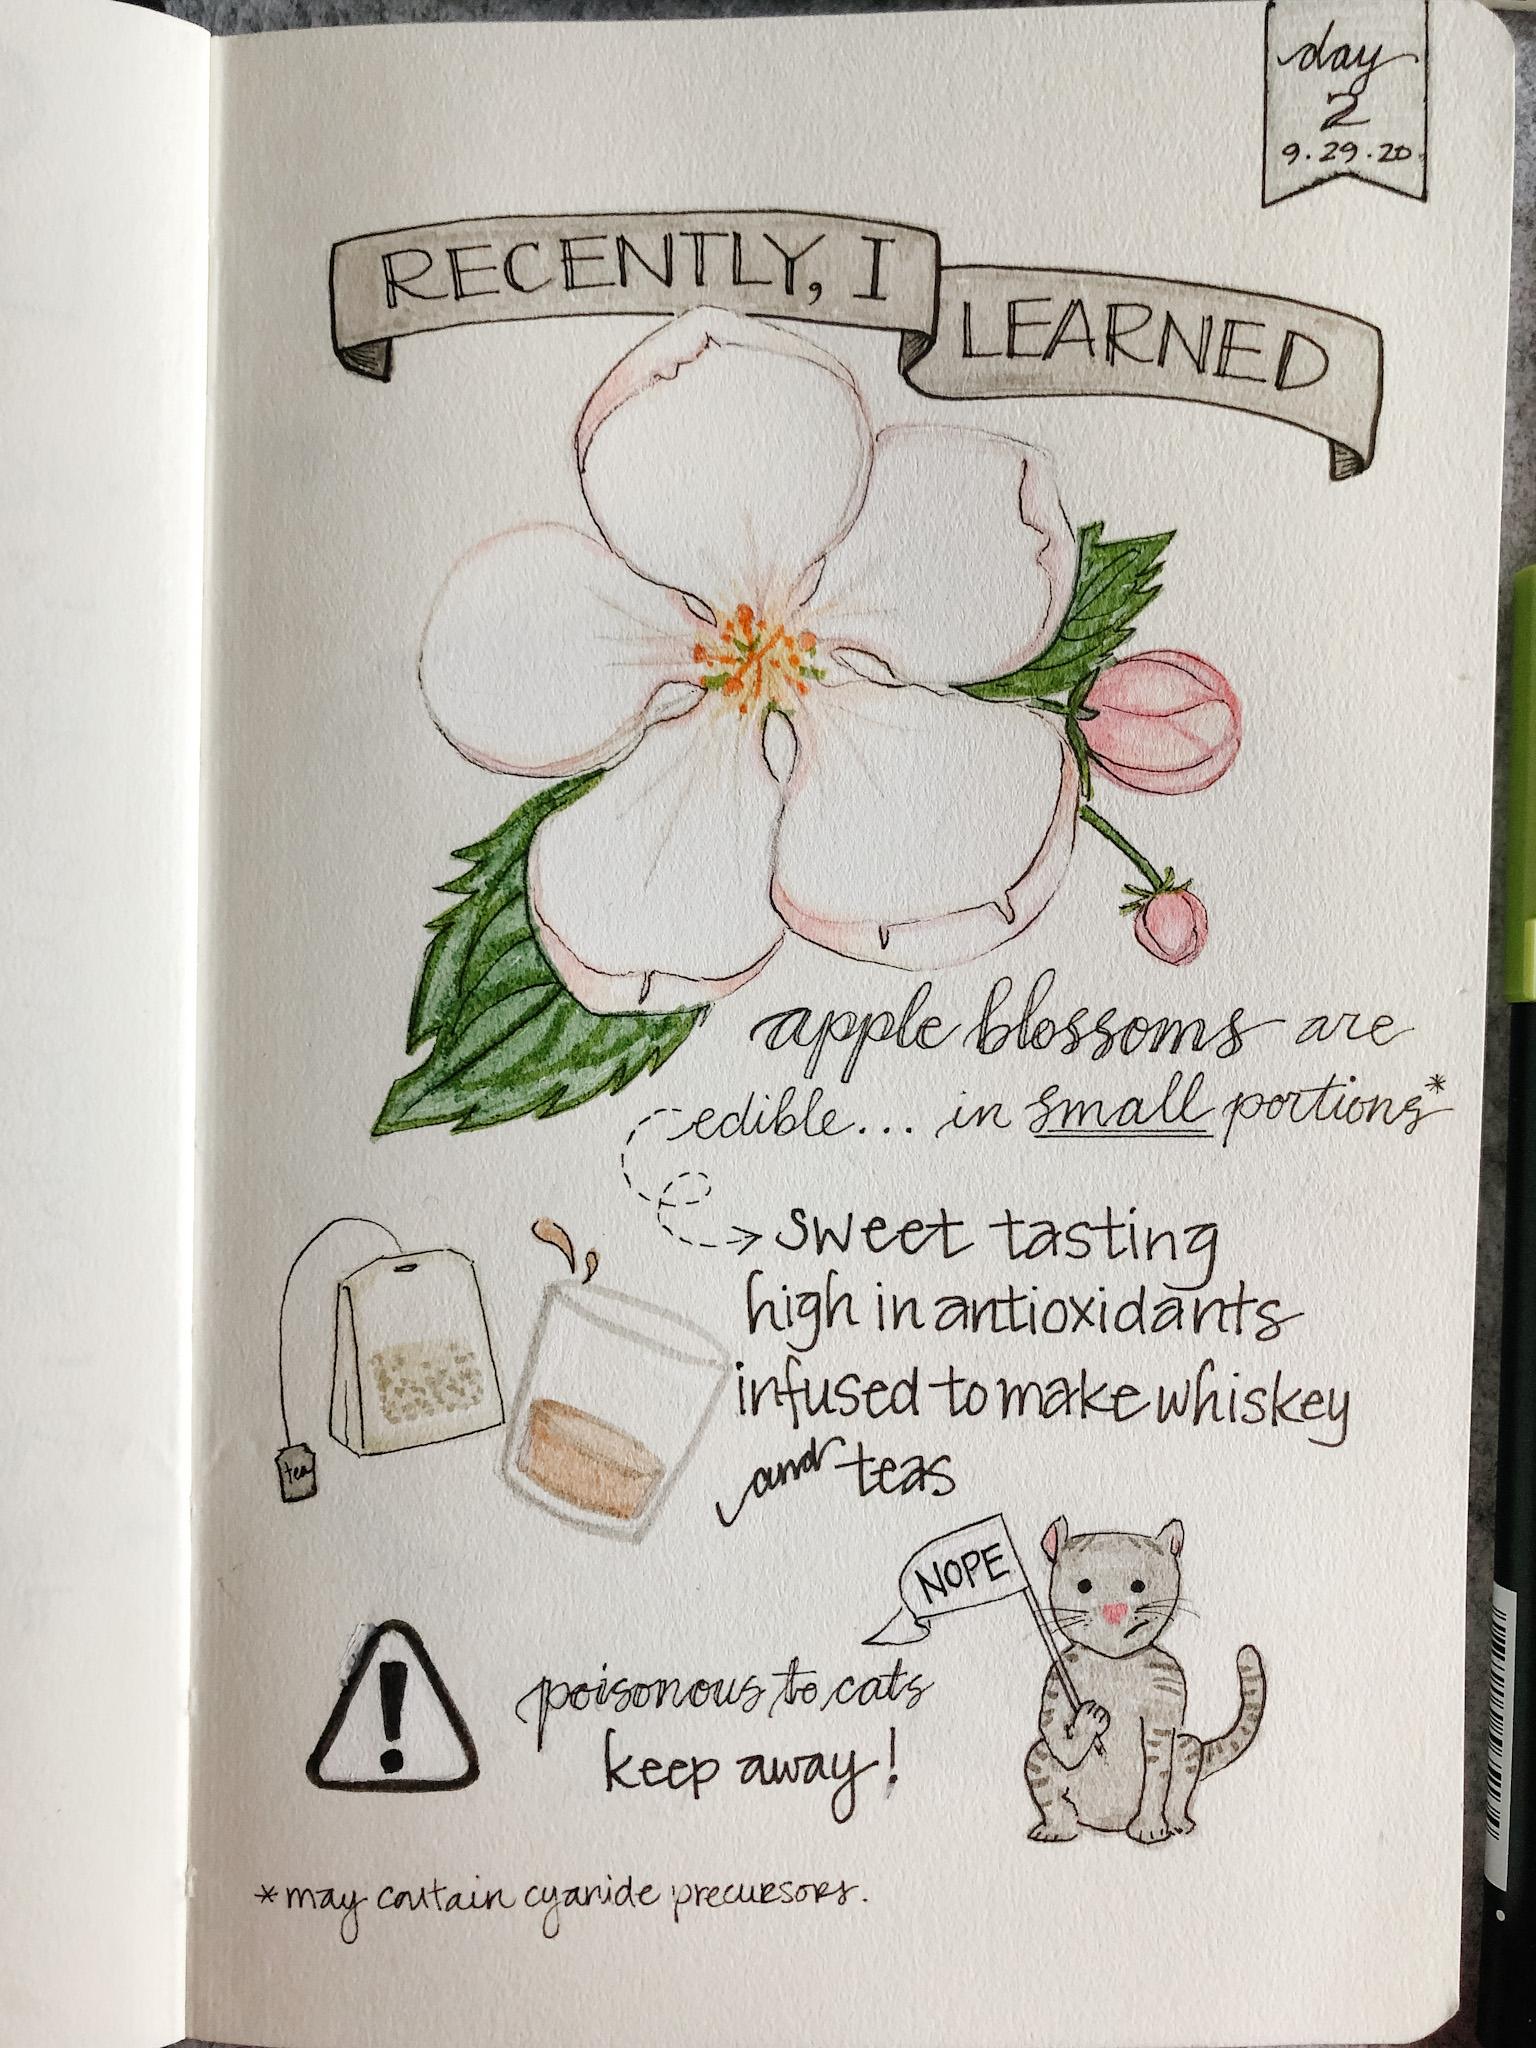 day
2
9.29.20
RECENTLY, I
LEARNED
apple blossoms are
edible... in small portions*
sweet tasting
high in antioxidants
infused to make whiskey
and teas
tea
NOPE
poisonous to cats
keep away!
*may contain cyanide precursors.